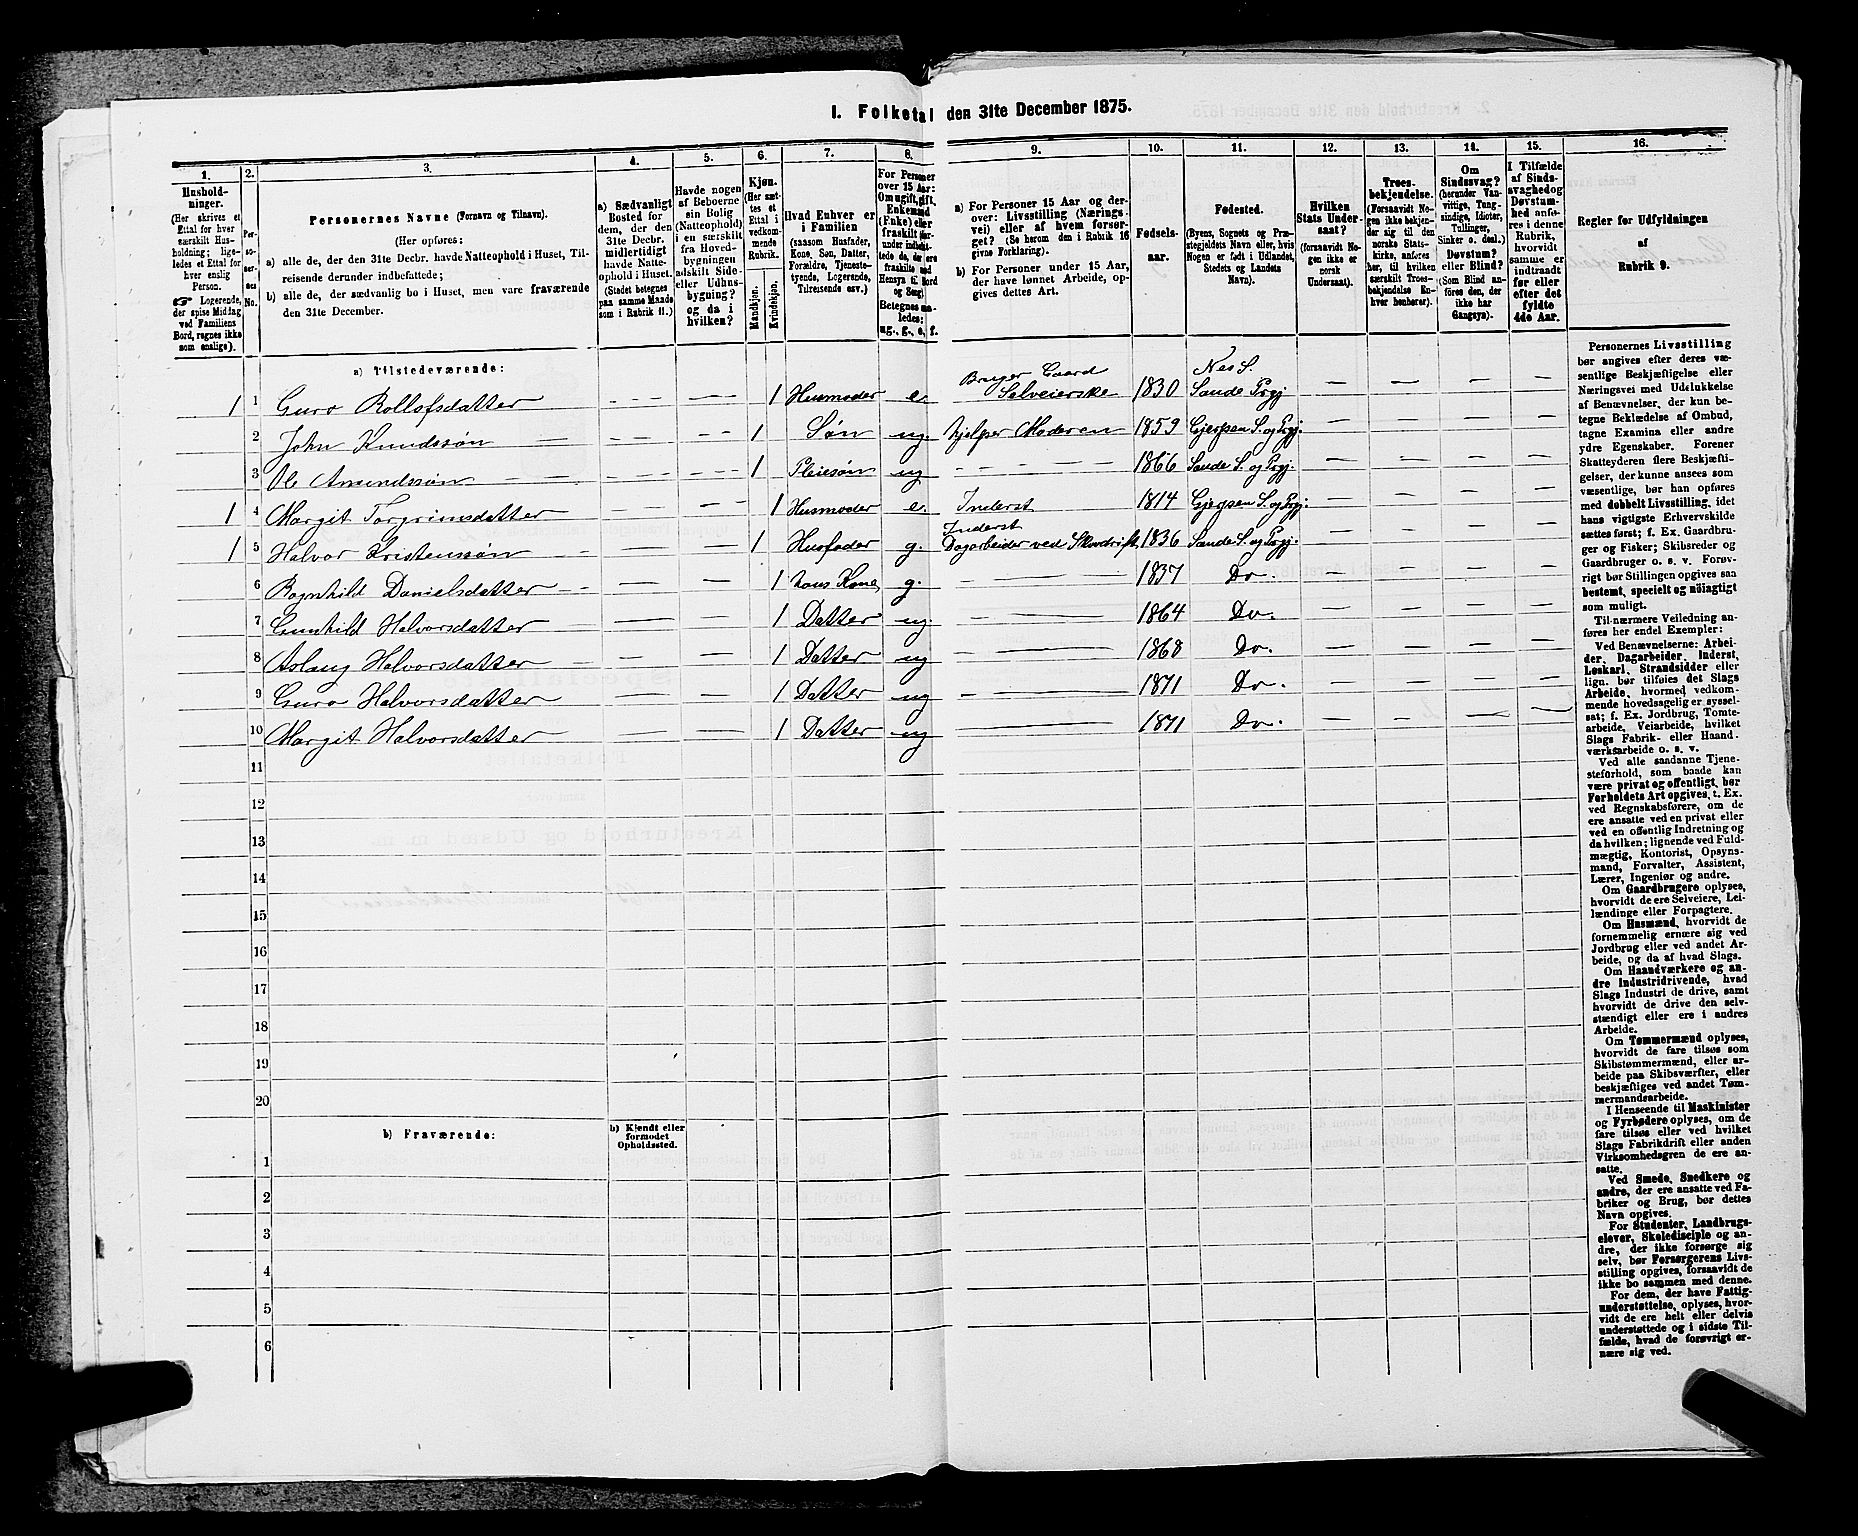 I. Folketal den 31te December 1875.
1. 2. 3. 4. 5. 6. 7. 8. 9. 10. 11. 12. 13. 14. 15. 16.
Husholdninger.
(Her skrives et Ettal for hver særskilt Husholdning; ligeledes et Ettal for hver enslig Person.
☞ Logerende, der spise Middag ved Familiens Bord, regnes ikke som enslige).
Personernes No.
Personernes Navne (Fornavn og Tilnavn).
(Her opføres:
a) alle de, der den 31te Decbr. havde Natteophold i Huset, Tilreisende derunder indbefattede;
b) alle de, der sædvanlig bo i Huset, men vare fraværende den 31te December.
a) Sædvanligt Bosted for dem, der den 31te Decbr. midlertidigt havde Natteophold i Huset. (Stedet betegnes paa samme Maade som i Rubrik 11.)
Havde nogen af Beboerne sin Bolig (Natteophold) i en særskilt fra Hovedbygningen adskilt Side- eller Udhusbygning? og da i hvilken?
Kjøn. (Her sættes et Ettal i vedkommende Rubrik.
Mandkjøn. Kvindekjøn.
Hvad Enhver er i Familien
(saasom Husfader, Kone, Søn, Datter, Forældre, Tjenestetyende, Logerende, Tilreisende osv.)
For Personer over 15 Aar: Om ugift, gift, Enkemand (Enke) eller fraskilt
Betegnes saaledes: ug., g., e., f.
a) For Personer 15 Aar og derover: Livsstilling (Næringsvei) eller af hvem forsørget? (Se herom den i Rubrik 16 givne Forklaring).
b) For Personer under 15 Aar, der have lønnet Arbeide, opgives dettes Art.
Fødselsaar.
Fødested.
(Byens, Sognets og Præstegjeldets Navn eller, hvis Nogen er født i Udlandet, Stedets og Landets Navn).
Hvilken Stats Undersaat?
(forsaavidt Nogen ikke er norsk Undersaat).
Troesbekjendelse.
(Forsaavidt Nogen ikke bekjender sig til den norske Statskirke, anføres her, til hvilken særskilt Troesbekjendelse Enhver henhører).
Om Sindssvag? (herunder Vanvittige, Tungsindige, Idioter, Tullinger, Sinker o. desl.) Døvstum? eller Blind? (Som Blind anføres den, der ikke har Gangsyn).
I Tilfælde af Sindssvaghed og Døvstumhed anføres i denne Rubrik, hvorvidt samme er indtraadt før eller efter det fyldte 4de Aar.
Regler for Udfyldningen af Rubrik 9.
a) Tilstedeværende:
1 1 Guro Rollofsdatter 1 Husmoder e. Bruger Gaard Selveierske 1830 Nes S. Saude Prgj
2 John Knudssøn 1 Søn ug. hjelper Moderen 1859 Gjerpen S. og Prgj.
3 Ole Amundssøn 1 Pleiesøn ug 1866 Saude S. og Prgj.
1 4 Margit Torgrimsdatter 1 Husmoder e. Inderst 1814 Gjerpen S. og Prgj.
1 5 Halvor Kristenssøn 1 Husfader g. Inderst Dagarbeider ved Skovdrift 1836 Saude S. og Prgj.
6 Ragnhild Danielsdatter 1 hans Kone g. 1837 Do.
7 Gunhild Halvorsdatter 1 Datter ug 1864 Do.
8 Aslaug Halvorsdatter 1 Datter ug 1868 Do.
9 Guro Halvorsdatter 1 Datter ug 1871 Do.
10 Margit Halvorsdatter 1 Datter ug 1871 Do.
11
12
13
14
15
16
17
18
19
20
b) Fraværende:
b) Kjendt eller formodet Opholdssted.
1
2
3
4
5
6
Personernes Livsstilling
bør angives efter deres væ-
sentlige Beskjæftigelse eller
Næringsvei med Udelukkelse
af Benævnelser, der kun be-
tegne Beklædelse af Ombud,
tagne Examina eller andre
ydre Egenskaber. Forener
Skatteyderen flere Beskjæfti-
gelser, der kunne ansees som
væsentlige, bør han opføres
med dobbelt Livsstilling, idet
hans vigtigste Erhvervskilde
sættes først; f. Ex. Gaardbru-
ger og Fisker; Skibsreder og
Gaardbruger o. s. v. Forøv-
rigt bør Stillingen opgives saa
bestemt, specielt og nøiagtigt
som muligt.
Til nærmere Veiledning an-
føres her endel Exempler:
Ved Benævnelserne: Arbei-
der, Dagarbeider, Inderst,
Løskarl, Strandsidder eller
lign. bør tilføies det Slags
Arbeide, hvormed vedkom-
mende hovedsagelig er syssel-
sat; f. Ex. Jordbrug, Tomte-
arbeide, Veiarbeide, hvilket
Slags Fabrik- eller Haand-
værksarbeide o. s. v.
Ved alle saadanne Tjene-
steforhold, som baade kan
være privat og offentligt, bør
Forholdets Art opgives, t. Ex.
ved Regnskabsførere, om de
ere ansatte ved en privat eller
ved en offentlig Indretning og
da hvilken; lignende ved Fuld-
mægtig, Kontorist, Opsyns-
mand, Forvalter, Assistent,
Lærer, Ingeniør og andre.
Om Gaardbrugere oplyses,
hvorvidt de ere Selveiere, Lei-
lændinge eller Forpagtere.
Om Husmænd, hvorvidt de
fornemmelig ernære sig ved
Jordbrug eller ved andet Ar-
beide, og da af hvad Slags.
Om Haandværkere og an-
dre Industridrivende, hvad
Slags Industri de drive, samt
hvorvidt de drive den selv-
stændigt eller ere i andres
Arbeide.
Om Tømmermænd oplyses,
hvorvidt de fare tilsøs som
Skibstømmermænd, eller ar-
beide paa Skibsværfter, eller
beskjæftiges ved andet Tøm-
mermandsarbeide.
I Henseende til Maskinister
og Fyrbødere oplyses, om de
fare tilsøs eller ved hvilket
Slags Fabrikdrift eller anden
Virksomhedsgren de ere an-
satte.
Ved Smede, Snedkere og
andre, der ere ansatte ved Fa-
briker og Brug, bør dettes
Navn opgives.
For Studenter, Landbrugs-
elever, Skoledisciple og an-
dre, der ikke forsørge sig
selv, bør Forsørgerens Livs-
stilling opgives, forsaavidt de
ikke bo sammen med denne.
For dem, der have Fattig-
understøttelse, oplyses, hvor-
vidt de ere helt eller delvis
understøttede og i sidste Til-
fælde, hvad de forøvrigt er-
nære sig ved.